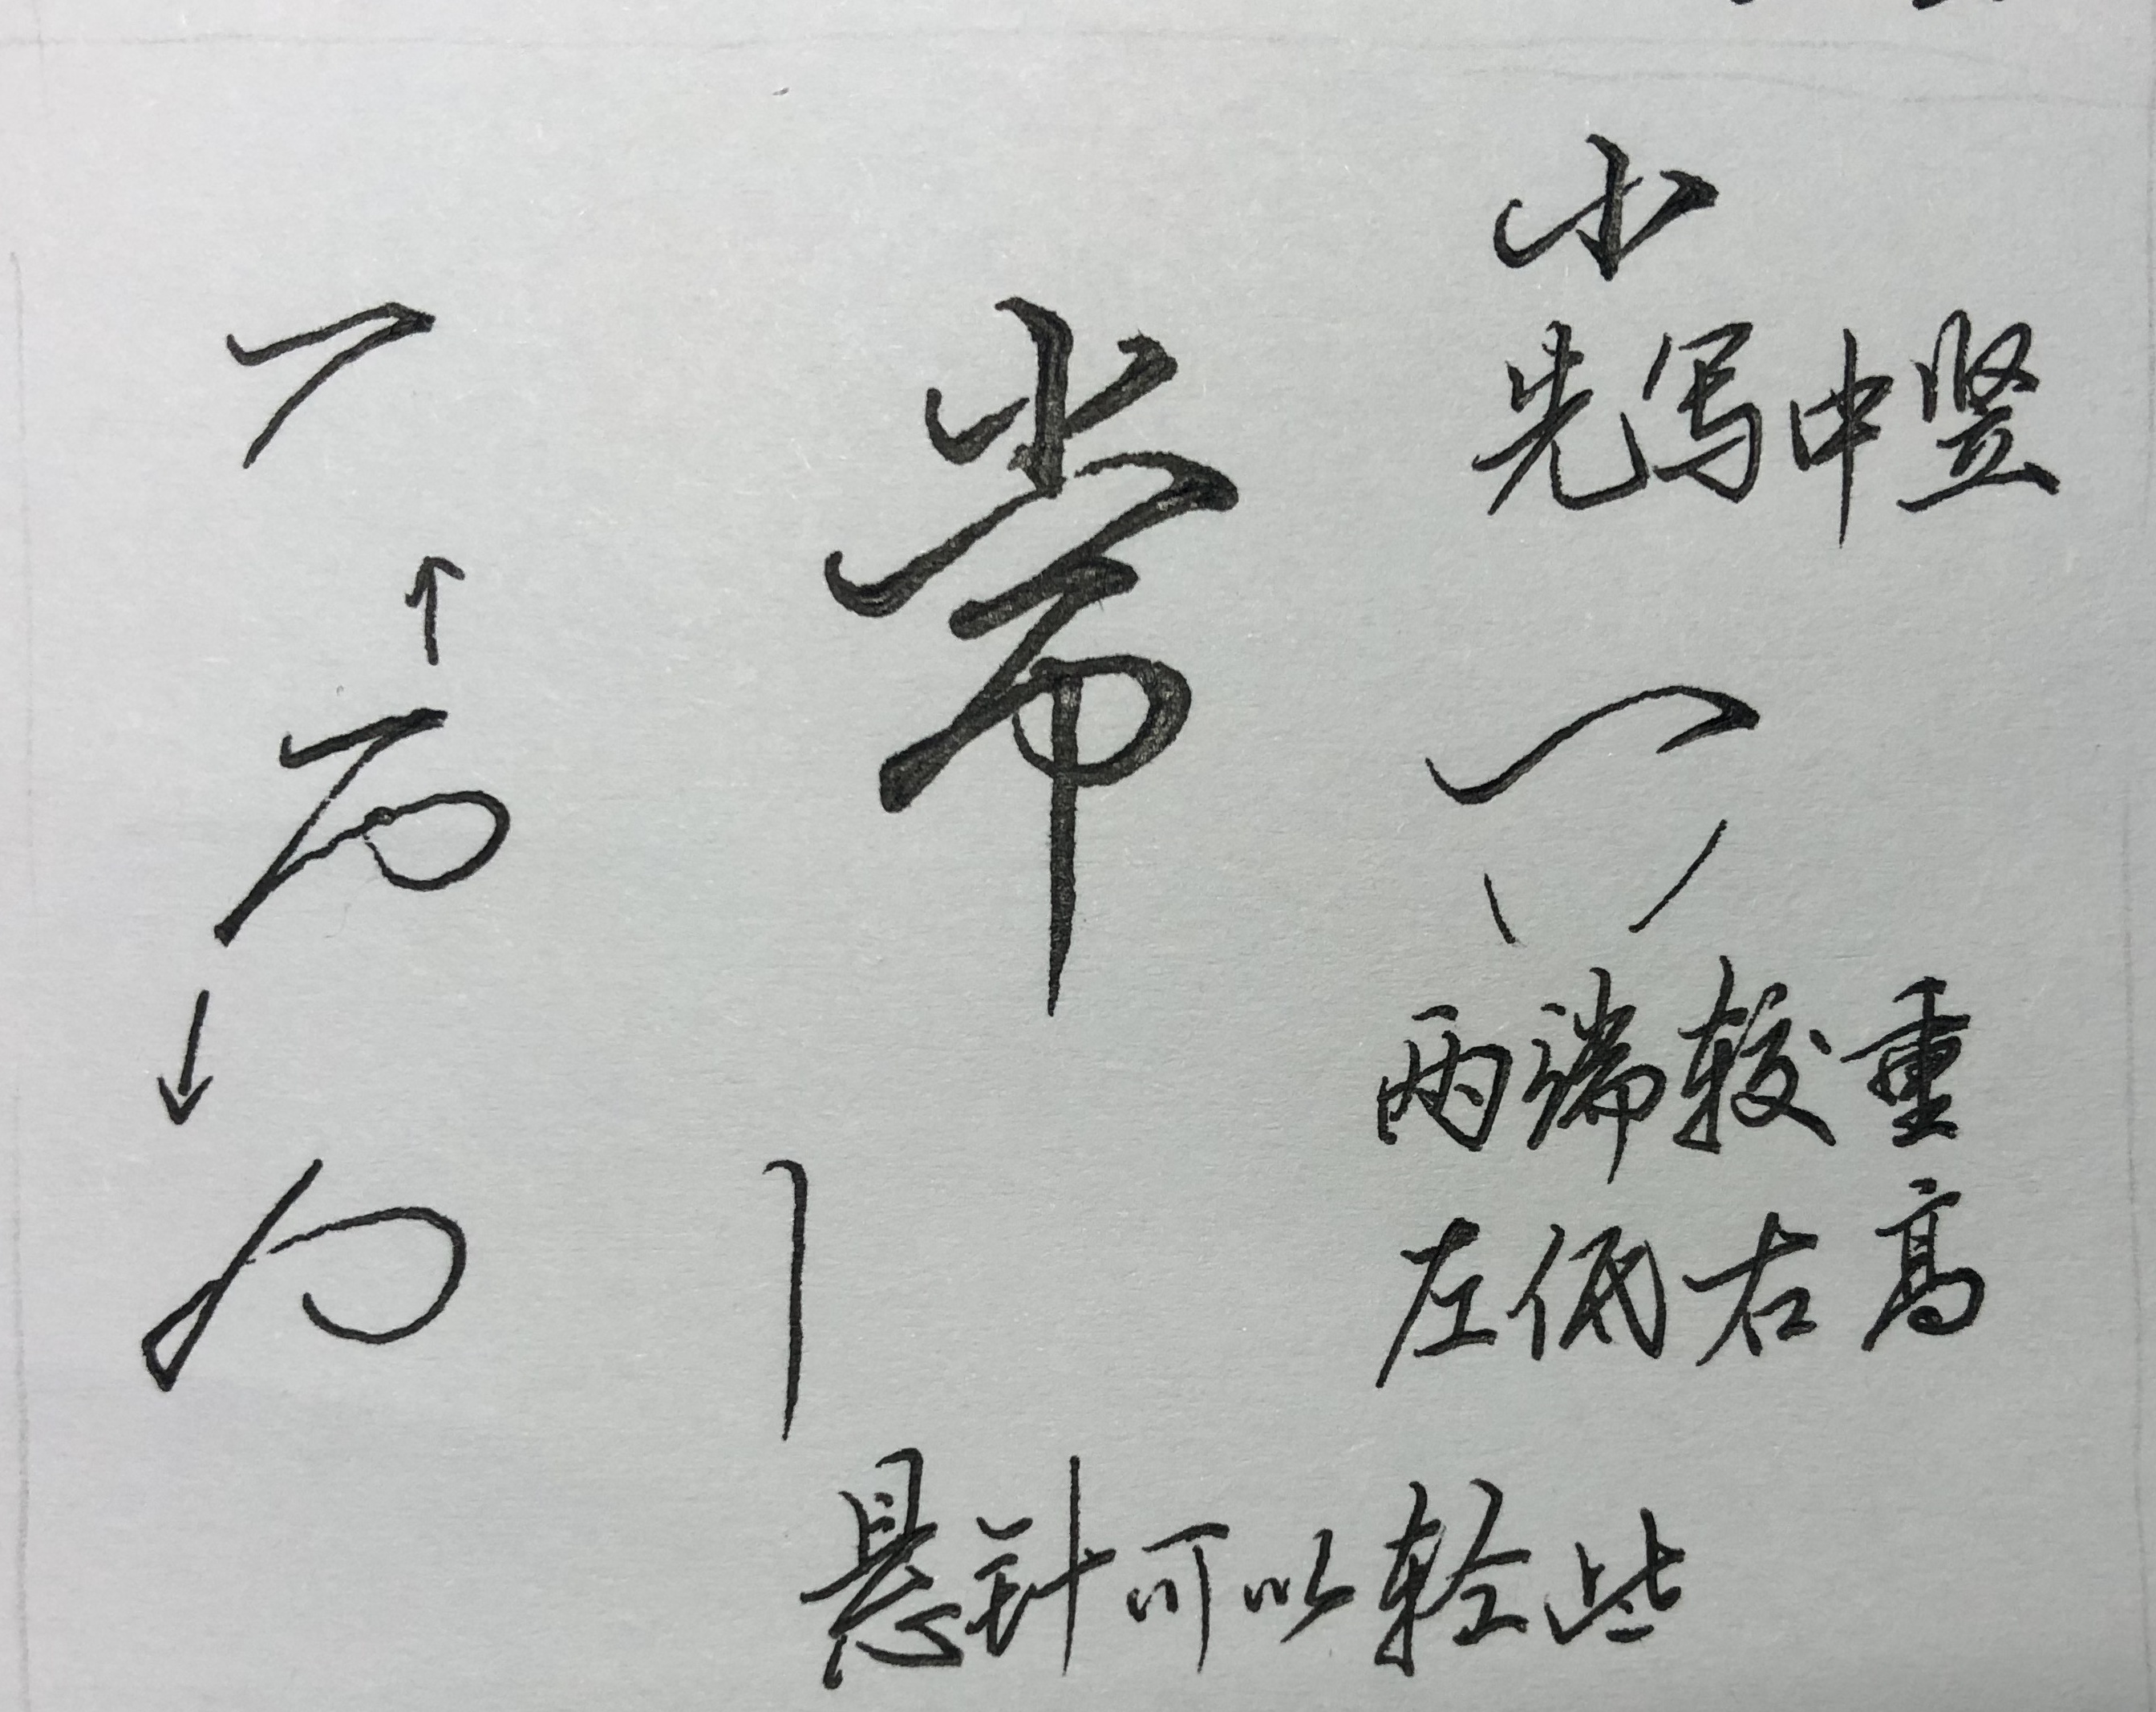 常
先写中竖
两端较重
左低右高
悬针可以轻些